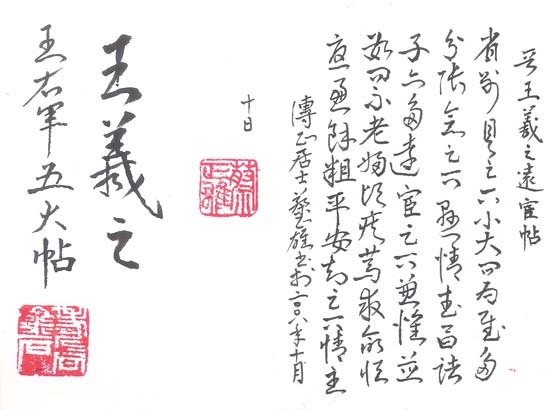 晉王羲之遠宦帖
省別具足下小大問為慰多
分張念足下懸情武昌諸
子亦多遠宦足下兼懷並
數問不老婦頃疾篤救命恒
憂慮餘粗平安知足下情至
傳正居士雄書於年十月
十日
王羲之
王右軍五大帖